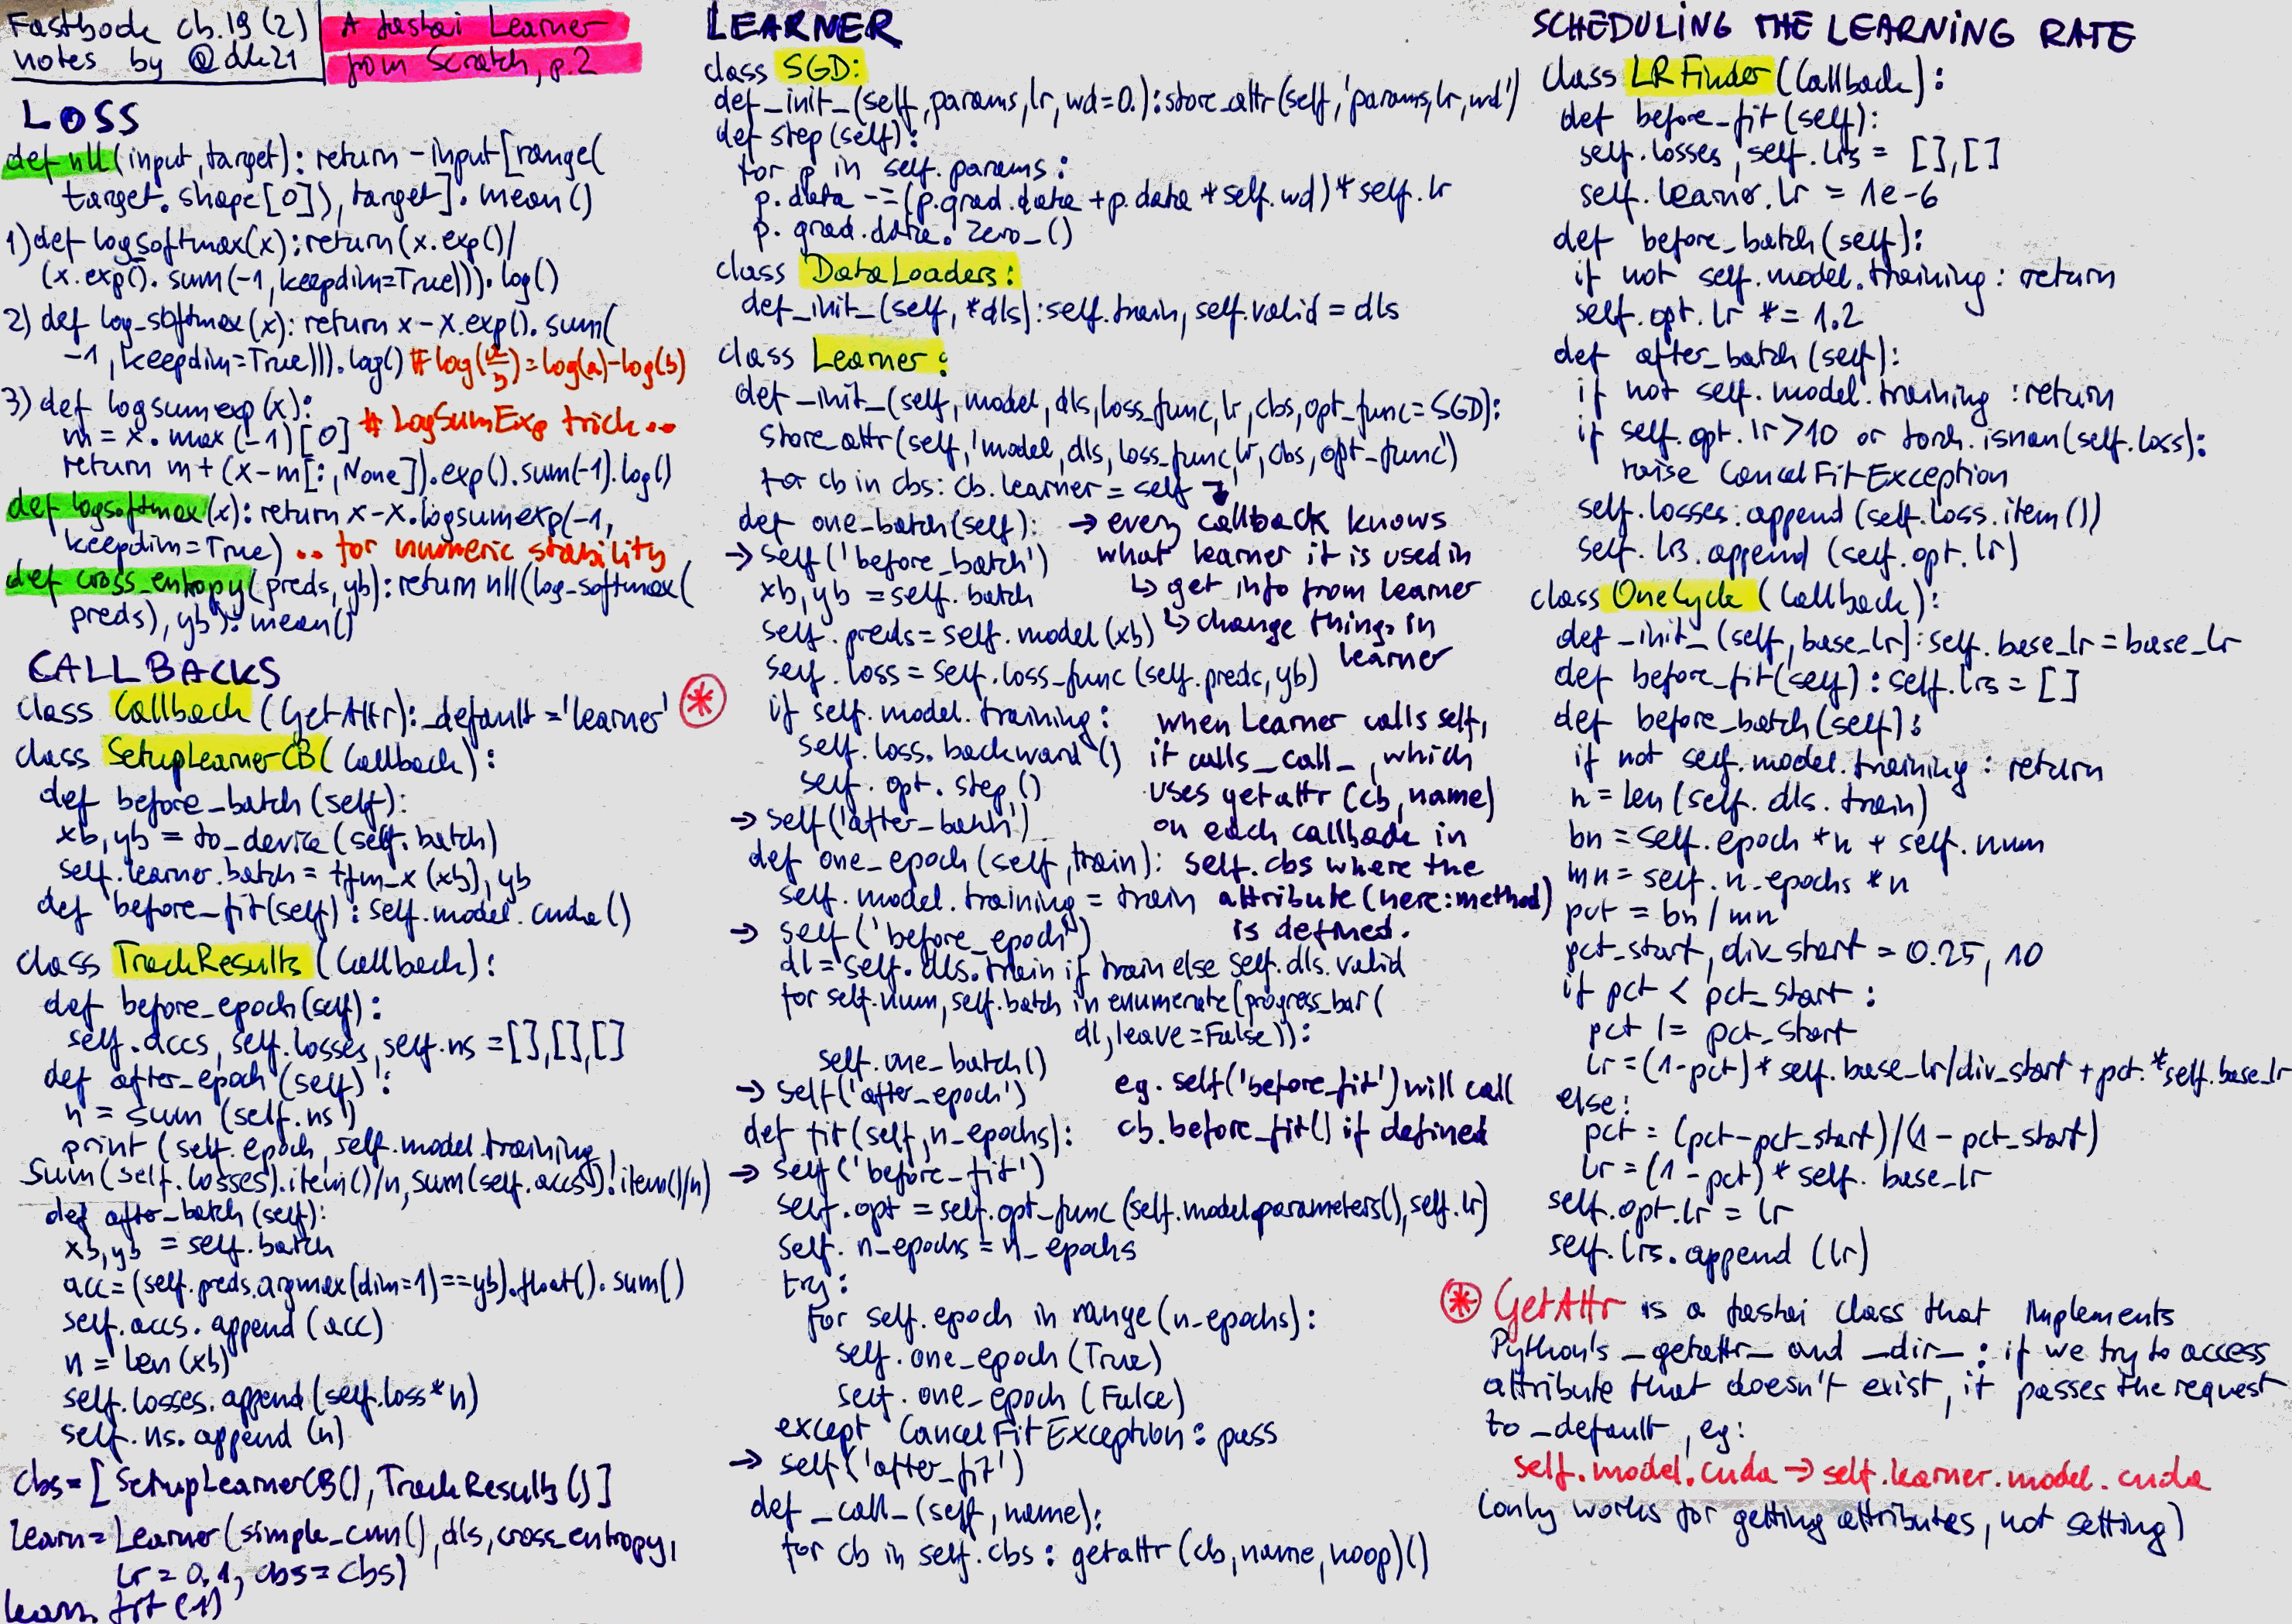 Fastbook ch.19 (2)
notes by @dle21
A fastai Learner
from Scratch, p.2
LOSS
def nll(input,target): return -input[range(
target.shape[0]), target].mean()
1) def logsoftmax(x): return (x.exp()/
(x.exp().sum(-1,keepdim=True))).log()
2) def log_softmax(x): return x-x.exp().sum(
-1, keepdim=True))).log() #log(a/b)=log(a)-log(b)
3) def logsumexp(x):
m = x.max(-1)[0] # LogSumExp trick..
return m+(x-m[:,None]).exp().sum(-1).log()
def logsoftmax(x): return x-x.logsumexp(-1,
keepdim=True) .. for numeric stability
def cross_entropy(preds,yb): return nll(log-softmax(
preds), yb).mean()
CALLBACKS
class Callback (GetAttr): _default='learner' *
class SetupLearnerCB(Callback):
def before_batch(self):
xb,yb = to_device(self.batch)
self.learner.batch = tfm_x(xb),yb
def before_fit(self): self.model.cuda()
class TrackResults(Callback):
def before_epoch(self):
self.accs, self.losses, self.ns = [],[],[]
def after_epoch(self):
n = sum(self.ns)
print(self.epoch, self.model.training,
sum(self.losses).item()/n, sum(self.accs).item()/n)
def after_batch(self):
xb,yb = self.batch
acc=(self.preds.argmax(dim=1)==yb).float().sum()
self.accs.append(acc)
n = len(xb)
self.losses.append(self.loss*n)
self.ns.append(n)
cbs=[SetupLearnerCB(),TrackResults()]
learn=Learner(simple_cnn(),dls,cross_entropy,
lr=0.1, cbs=cbs)
learn.fit(1)
LEARNER
class SGD:
def_init_(self,params,lr,wd=0.):store_attr(self,'params,lr,wd')
def step(self):
for p in self.params:
p.data -= (p.grad.data + p.data * self.wd)* self.lr
p.grad.data.zero_()
class DataLoaders:
def_init_(self,*dls):self.train, self.valid = dls
class Learner:
def_init_(self, model, dls, loss_func, lr, cbs, opt_func=SGD):
store_attr(self,'model,dls,loss_func,lr,cbs,opt_func')
for cb in cbs: cb.learner = self
def one_batch(self): → every callback knows
→ self('before_batch') what learner it is used in
xb,yb = self.batch ↳ get info from learner
self.preds = self.model(xb) ↳ change things in
self.loss = self.loss_func(self.preds,yb) learner
if self.model.training: when Learner calls self,
self.loss.backward() it calls _call_, which
self.opt.step() uses getattr(cb,name)
→ self('after_batch') on each callback in
def one_epoch(self,train): self.cbs where the
self.model.training = train attribute (here: method)
→ self('before_epoch') is defined.
dl = self.dls.train if train else self.dls.valid
for self.num,self.batch in enumerate(progress_bar(
dl,leave=False)):
self.one_batch()
→ self('after_epoch') eg. self('before_fit') will call
def fit(self,n_epochs): cb.before_fit() if defined
→ self('before_fit')
self.opt = self.opt_func(self.model.parameters(),self.lr)
self.n_epochs = n_epochs
try:
for self.epoch in range(n_epochs):
self.one_epoch(True)
self.one_epoch(False)
except CancelFitException: pass
→ self('after_fit')
def _call_(self,name):
for cb in self.cbs: getattr(cb,name,noop)()
SCHEDULING THE LEARNING RATE
class LRFinder(Callback):
def before_fit(self):
self.losses, self.lrs = [],[]
self.learner.lr = 1e-6
def before_batch(self):
if not self.model.training: return
self.opt.lr *= 1.2
def after_batch(self):
if not self.model.training: return
if self.opt.lr>10 or torch.isnan(self.loss):
raise CancelFitException
self.losses.append(self.loss.item())
self.lrs.append(self.opt.lr)
class OneCycle(Callback):
def _init_(self,base_lr):self.base_lr=base_lr
def before_fit(self): self.lrs = []
def before_batch(self):
if not self.model.training: return
n = len(self.dls.train)
bn = self.epoch * n + self.num
mn = self.n_epochs * n
pct = bn/mn
pct_start, div_start = 0.25, 10
if pct < pct_start:
pct /= pct_start
lr = (1-pct)* self.base_lr/div_start + pct*self.base_lr
else:
pct = (pct-pct_start)/(1-pct_start)
lr = (1-pct)* self.base_lr
self.opt.lr = lr
self.lrs.append(lr)
* GetAttr is a fastai class that implements
Python's _getattr_ and _dir_: if we try to access
attribute that doesn't exist, it passes the request
to _default, eg:
self.model.cuda → self.learner.model.cuda
(only works for getting attributes, not setting)